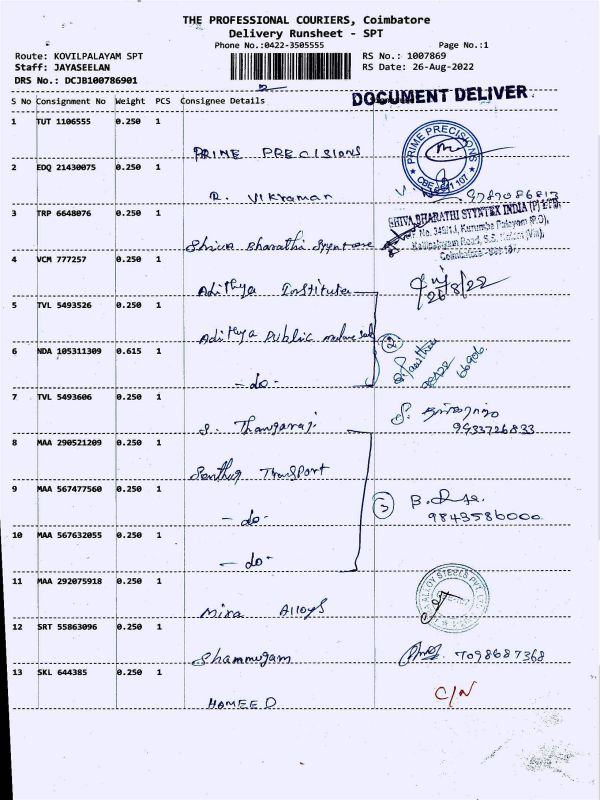 THE PROFESSIONAL COURIERS, Coimbatore
Delivery Runsheet - SPT
Phone No.:0422-3505555
Page No.:1
Route: KOVILPALAYAM SPT
RS No.: 1007869
Staff: JAYASEELAN
RS Date: 26-Aug-2022
DRS No.: DCJB100786901
DOCUMENT DELIVER
S No Consignment No Weight PCS Consignee Details
1 TUT 1106555 0.250 1
PRIME PRECISIONS
PRIME PRECISIONS
2 EDQ 21430075 0.250 1
R. Vikraman
9787086813
3 TRP 6648076 0.250 1
SHIVA BHARATHI SYNTEX INDIA (P) LTD
Shiva Bharathi
4 VCM 777257 0.250 1
Adithya Institute
26/8/22
5 TVL 5493526 0.250 1
Adithya Public
6 NDA 105311309 0.615 1
- do -
7 TVL 5493606 0.250 1
S. Thangaraj
9433726833
8 MAA 290521209 0.250 1
Senthur Transport
9 MAA 567477560 0.250 1
- do -
3
9843586000
10 MAA 567632055 0.250 1
- do -
11 MAA 292075918 0.250 1
Mira Alloys
ALLOY STEELS PVT. LTD
12 SRT 55863096 0.250 1
Shammugam
7098687368
13 SKL 644385 0.250 1
HAMEED
C/N